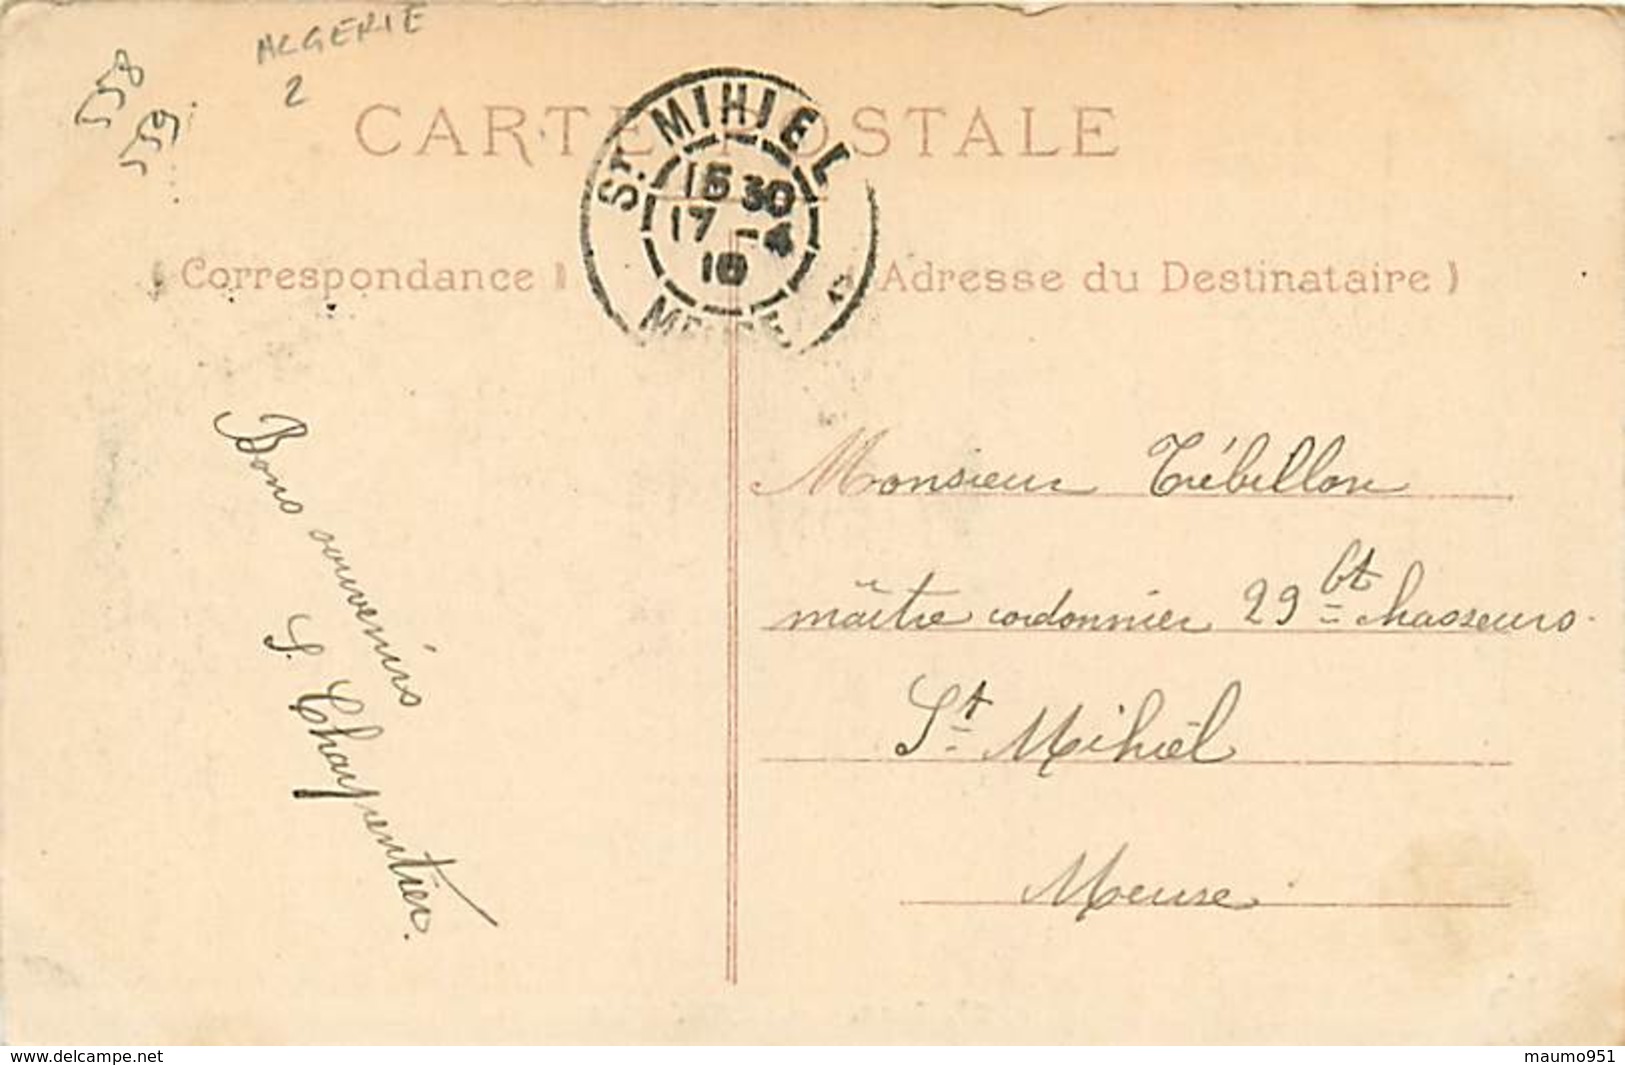 ALGERIE
2
558
559
CARTE POSTALE
ST MIHIEL
15 30
17 - 4
10
MEUSE
Correspondance
Adresse du Destinataire
Bons souvenirs
S. Charpentier.
Monsieur Trébillon
maître cordonnier 29 bt chasseurs.
St Mihiel
Meuse
www.delcampe.net
maumo951